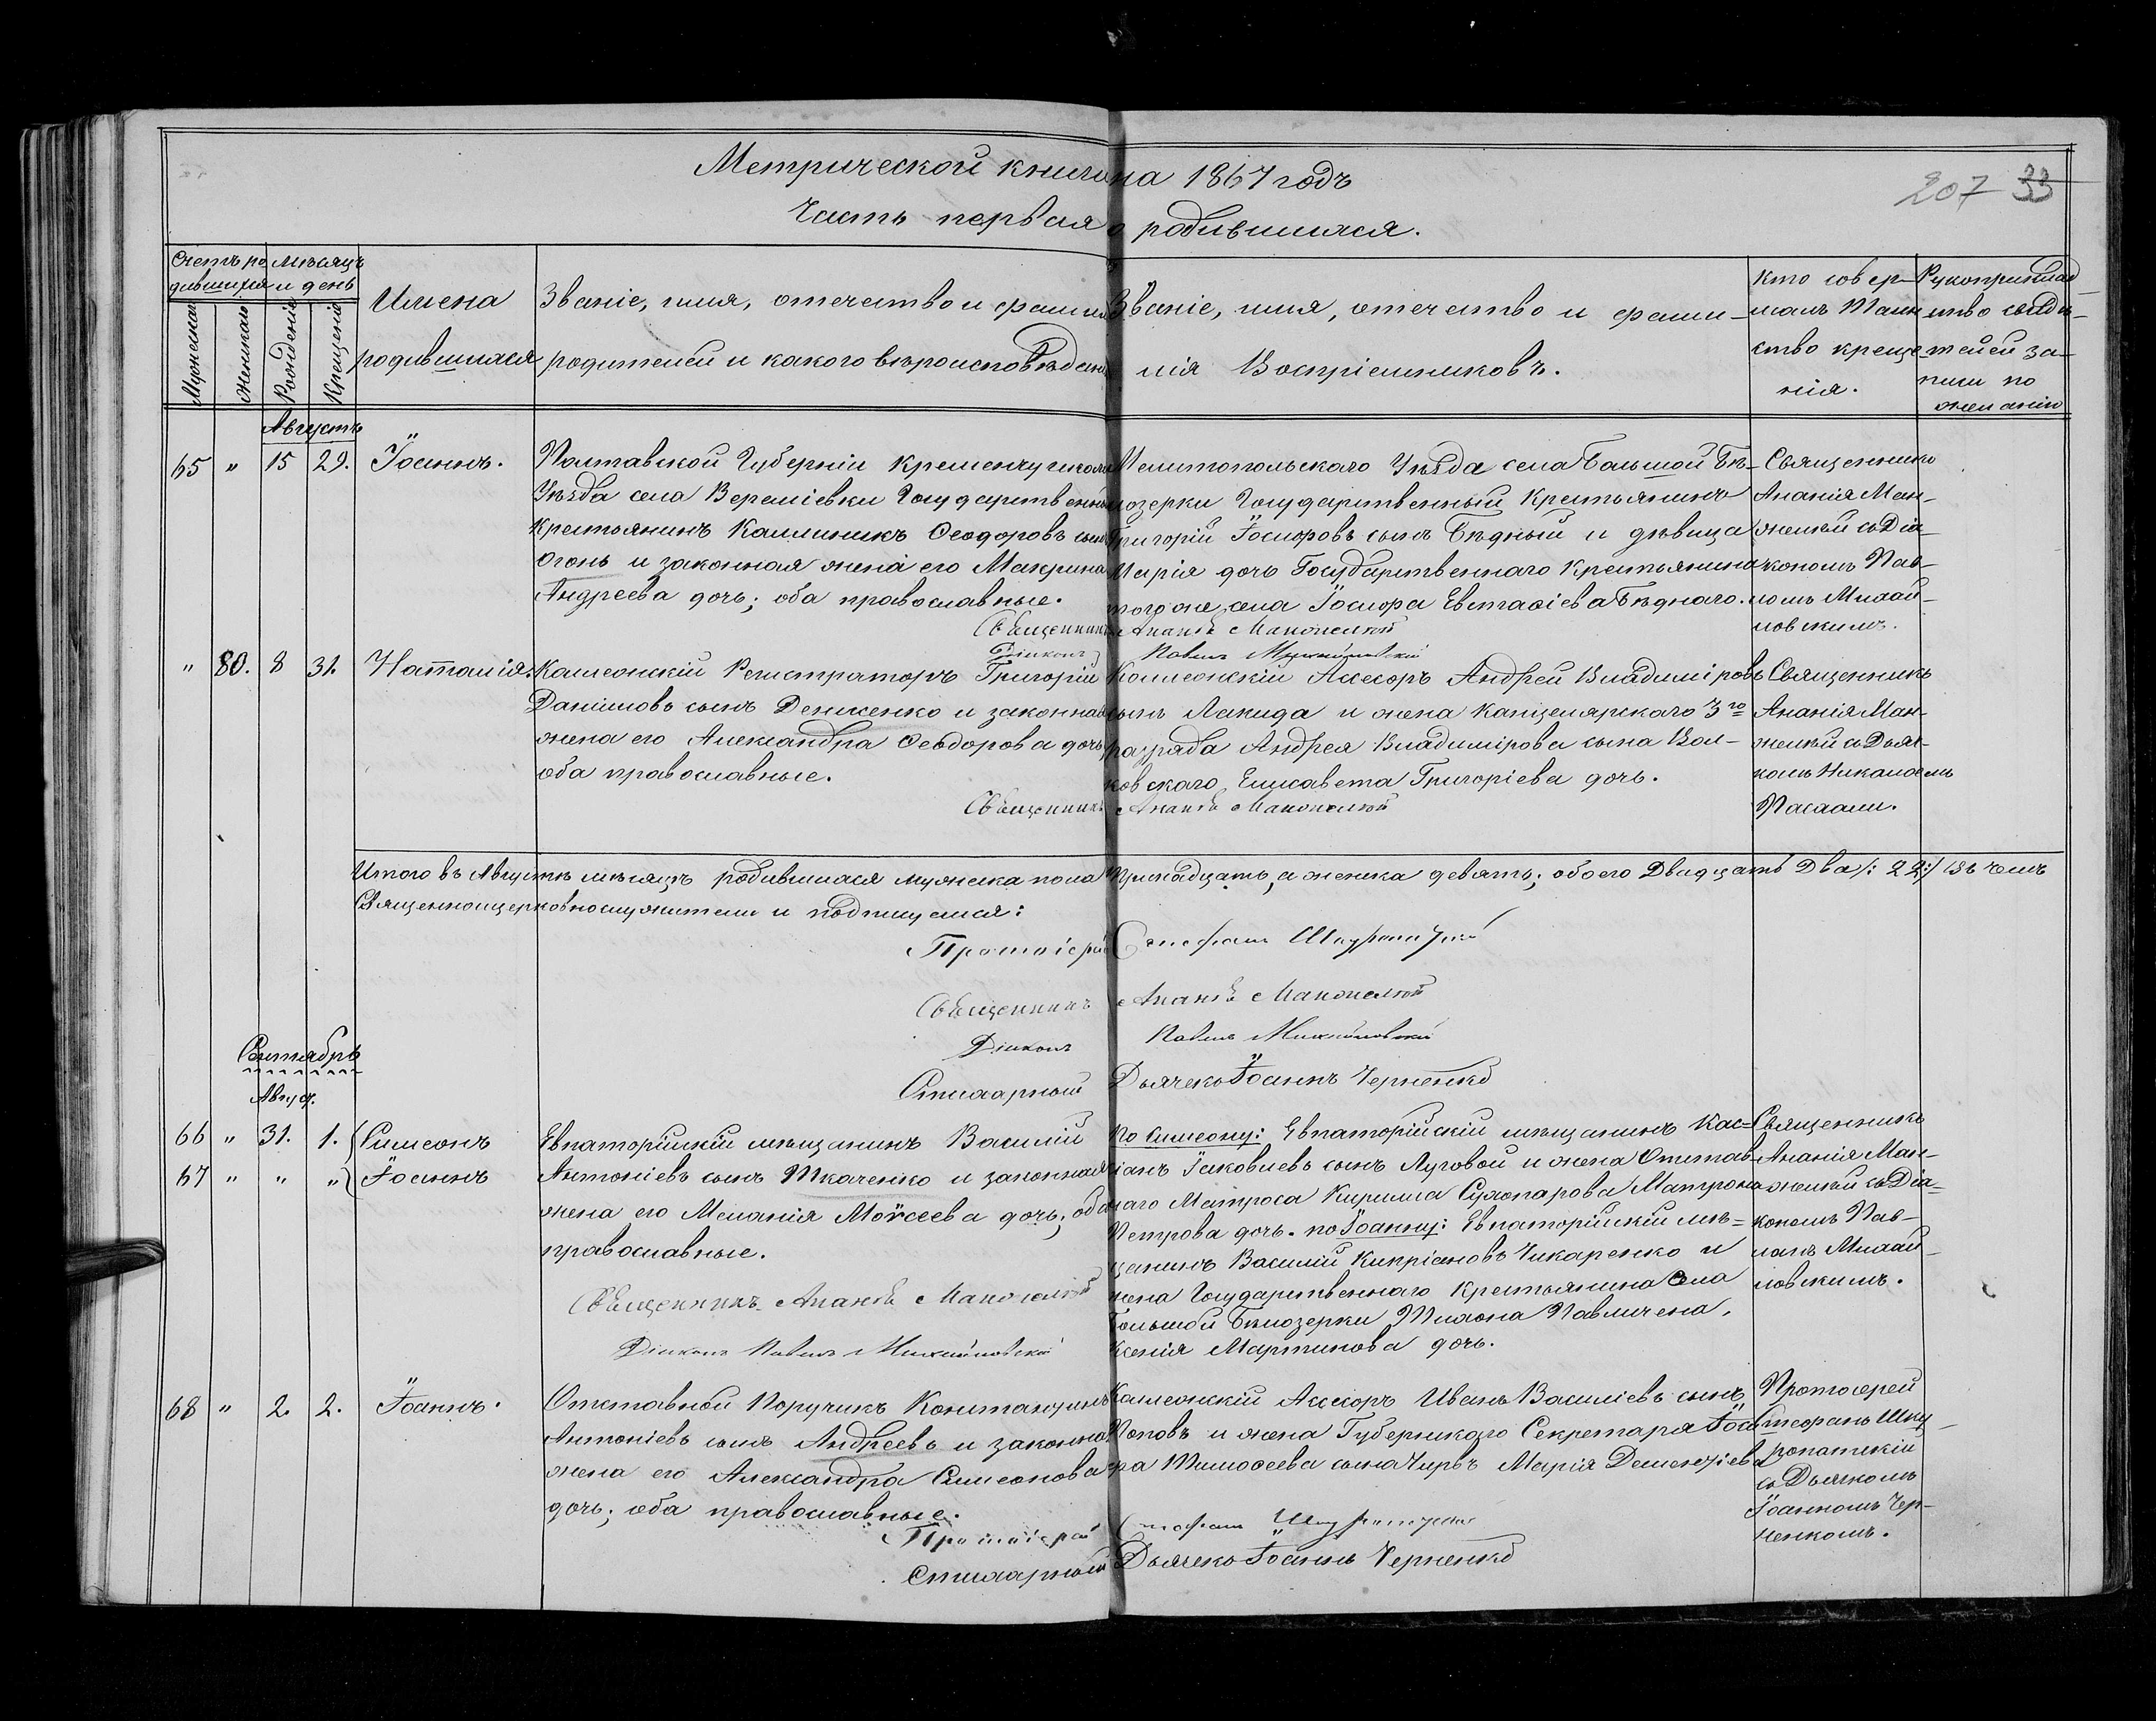 Метрической книги на 1867 годъ
207 33
Часть первая о родившихся.
Счетъ родившихся
Мѣсяцъ и день
Мужескаго
Женскаго
Рожденія
Крещенія
Имена родившихся
Званіе, имя, отечество и фамилія
родителей и какого вѣроисповѣданія
Званіе, имя, отечество и фами-
лія Воспріемниковъ.
Кто совер-
шалъ Таин-
ство креще-
нія.
Рукоприклад-
ство свидѣ-
телей за-
писи по
желанію
Августъ
65 " 15 29. Іоаннъ.
Полтавской Губерніи Кременчугскаго
Уѣзда села Вереміевки Государственный
Крестьянинъ Каллиникъ Ѳеодоровъ сынъ
Огонь и законная жена его Макрина
Андреева дочь; оба православные.
Мелитопольскаго Уѣзда села Большой Бѣ-
лозерки Государственный Крестьянинъ
Григорій Іосифовъ сынъ Бѣдный и дѣвица
Марія дочь Государственнаго Крестьянина
того же села Іосифа Евстафіева Бѣднаго.
Священникъ
Ананія Ман-
желѣй съ Діа-
кономъ Пав-
ломъ Михай-
ловскимъ.
Священникъ Ананія Манжелѣй
Діаконъ Павелъ Михайловскій
" 80. 8 31. Наталія.
Коллежскій Регистраторъ Григорій
Даніиловъ сынъ Денисенко и законная
жена его Александра Ѳеодорова дочь
оба православные.
Коллежскій Асесоръ Андрей Владиміровъ
сынъ Лакида и жена Канцелярскаго 3го
разряда Андрея Владимірова сына Вол-
ковскаго Елисавета Григоріева дочь.
Священникъ
Ананія Ман-
желѣй съ Дьяч-
комъ
Священникъ Ананія Манжелѣй
Итого въ Августѣ мѣсяцѣ родившихся мужеска пола тринадцать, а женска девять; обоего двадцать два /: 22 :/
Священноцерковнослужители и подпишемся:
Протоіерей Стефанъ
Священникъ Ананія Манжелѣй
Діаконъ Павелъ Михайловскій
Стихарный Дьячекъ Іоаннъ Черненко
Сентябрь
Авгус.
66 " 31. 1. Симеонъ
67 " " " Іоаннъ
Евпаторійскій мѣщанинъ Василій
Антоніевъ сынъ Ткаченко и законная
жена его Меланія Моѵсеева дочь; оба
православные.
По Симеону: Евпаторійскій мѣщанинъ Кас-
ьянъ Іаковлевъ сынъ Луговой и жена Отстав-
наго Матроса Кирилла Сухопарова Матрона
Петрова дочь. по Іоанну: Евпаторійскій мѣ-
щанинъ Василій Кипріановъ Чикаренко и
жена Государственнаго Крестьянина села
Большой Бѣлозерки Тихона Павличена,
Ксенія Мартинова дочь.
Священникъ
Ананія Ман-
желѣй съ Діа-
кономъ Пав-
ломъ Михай-
ловскимъ.
Священникъ Ананія Манжелѣй
Діаконъ Павелъ Михайловскій
68 " 2. 2. Іоаннъ.
Отставной Поручикъ Константинъ
Антоніевъ сынъ Андреевъ и законная
жена его Александра Симеонова
дочь; оба православные.
Коллежскій Асесоръ Иванъ Василіевъ сынъ
Поповъ и жена Губернскаго Секретаря
Тимоѳеева сына Марія
Протоіерей
Стефанъ
съ Дьячкомъ
Іоанномъ Чер-
ненкомъ.
Протоіерей Стефанъ
Стихарный Дьячекъ Іоаннъ Черненко